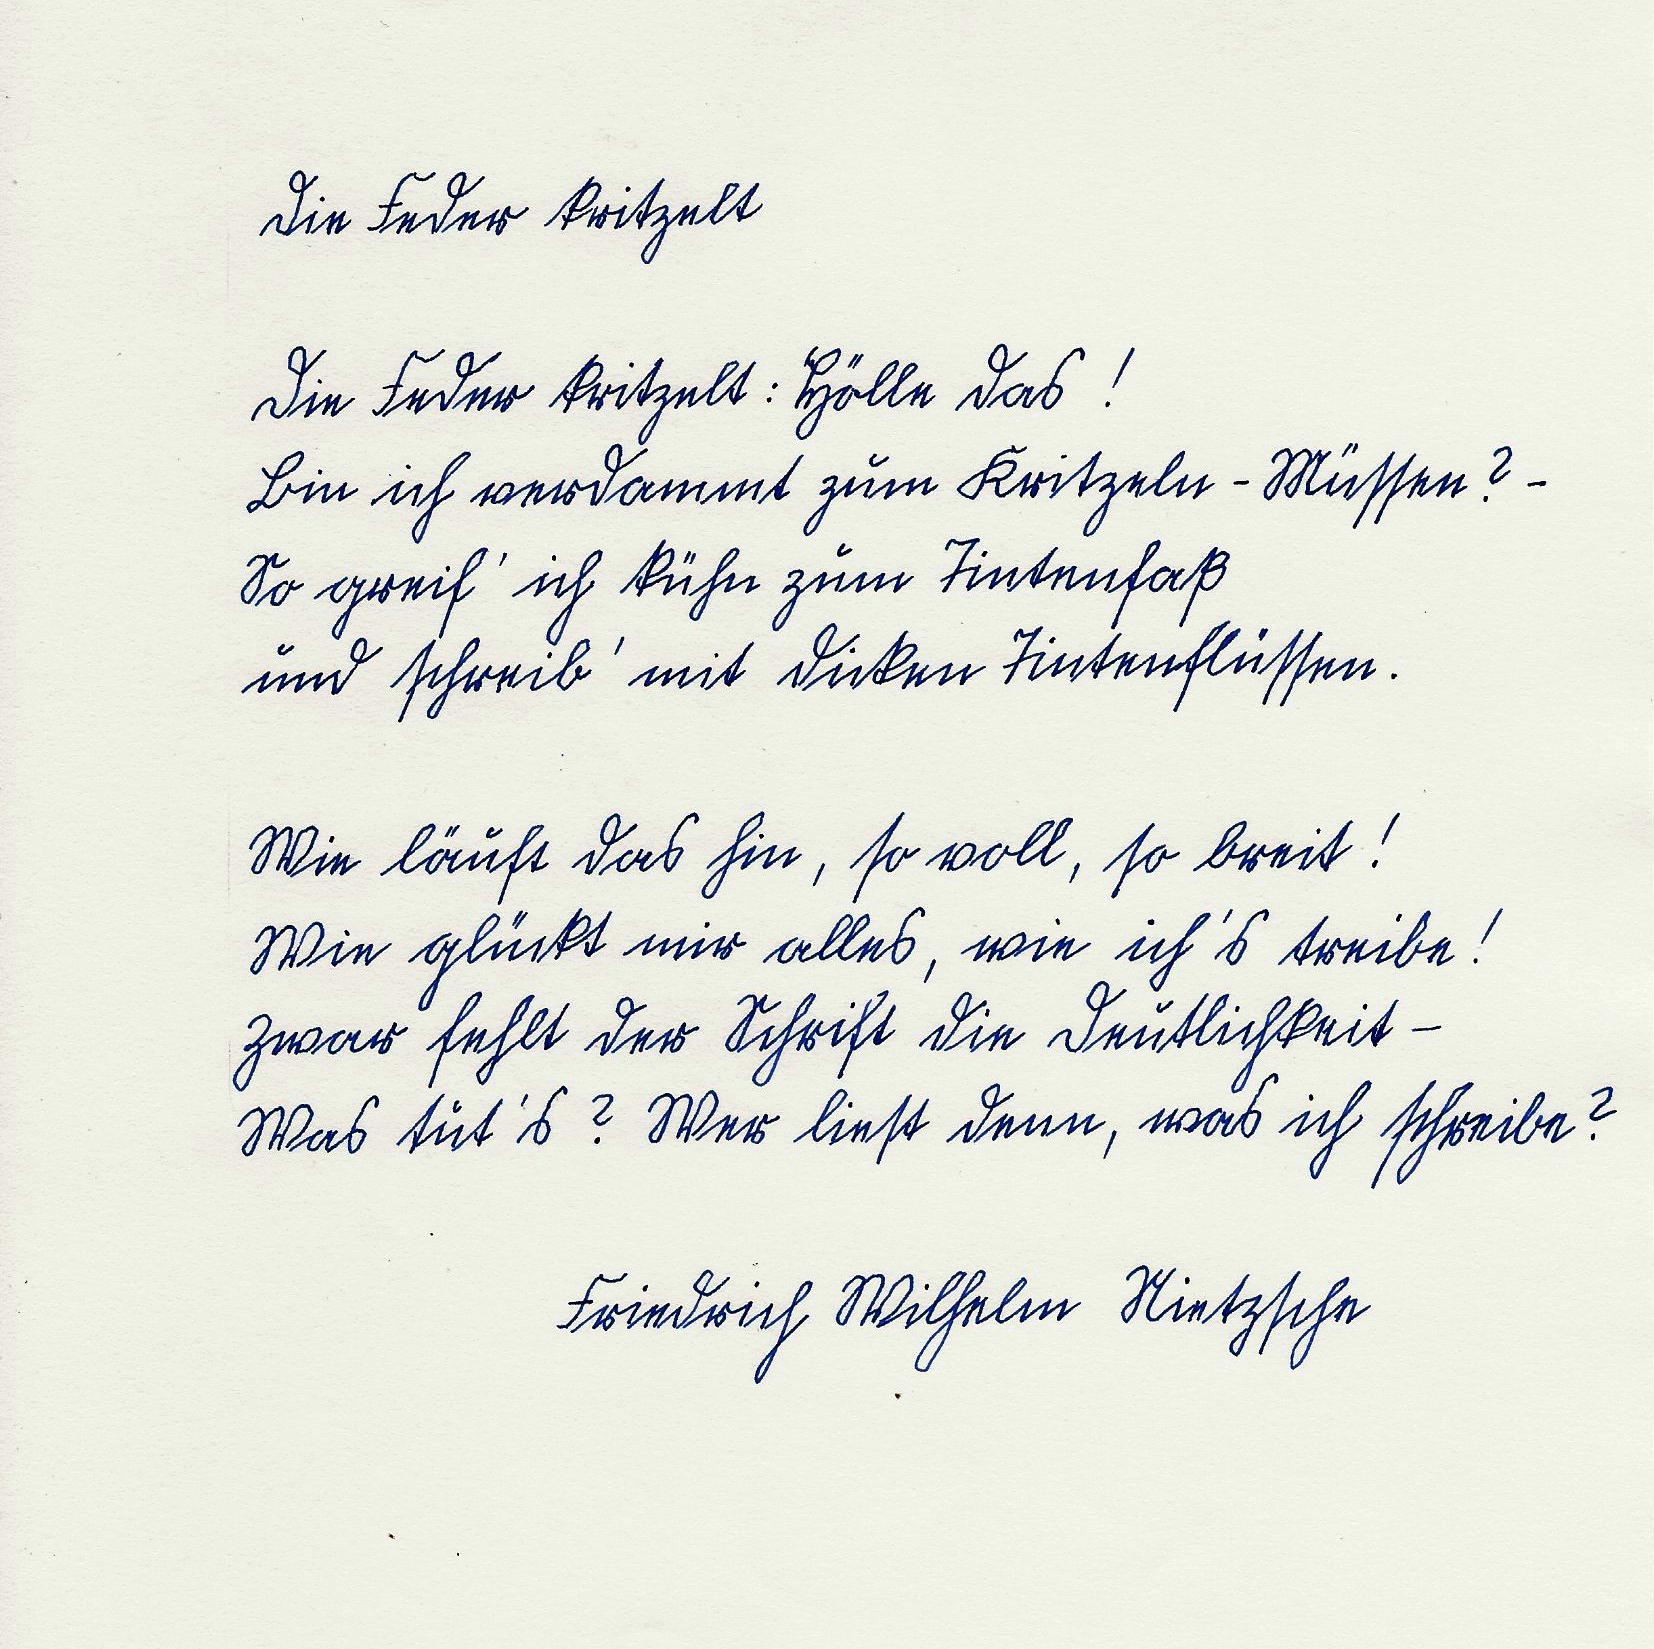 Die Feder kritzelt
Die Feder kritzelt: Hölle das!
Bin ich verdammt zum Kritzeln-Müssen? -
So greif' ich kühn zum Tintenfaß
und schreib' mit dicken Tintenflüssen.
Wie läuft das hin, so voll, so breit!
Wie glückt mir alles, wie ich's treibe!
Zwar fehlt der Schrift die Deutlichkeit –
Was tut's? Wer liest denn, was ich schreibe?
Friedrich Wilhelm Nietzsche